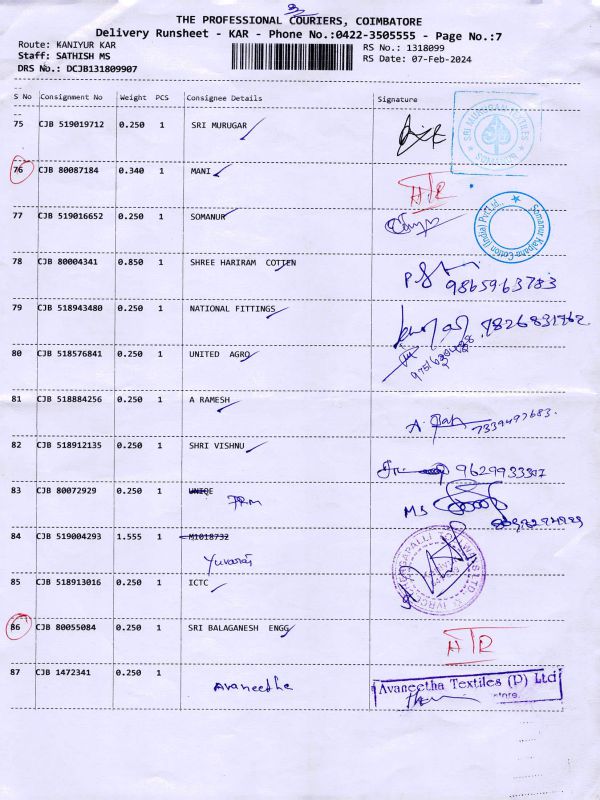 3
THE PROFESSIONAL COURIERS, COIMBATORE
Delivery Runsheet - KAR - Phone No.:0422-3505555 - Page No.:7
Route: KANIYUR KAR
RS No.: 1318099
Staff: SATHISH MS
RS Date: 07-Feb-2024
DRS No.: DCJB131809907
S No Consignment No Weight PCS Consignee Details Signature
75 CJB 519019712 0.250 1 SRI MURUGAR
SRI MURUGAN TEXTILES
76 CJB 80087184 0.340 1 MANI
77 CJB 519016652 0.250 1 SOMANUR
Somanur Kalpana Cotton (India) Pvt Ltd.,
78 CJB 80004341 0.850 1 SHREE HARIRAM COTTEN
9865963783
79 CJB 518943480 0.250 1 NATIONAL FITTINGS
7826831762
80 CJB 518576841 0.250 1 UNITED AGRO
81 CJB 518884256 0.250 1 A RAMESH
7339497683
82 CJB 518912135 0.250 1 SHRI VISHNU
83 CJB 80072929 0.250 1 UNIQE
PRM
MS
84 CJB 519004293 1.555 1 M1018732
Yuvaraj
85 CJB 518913016 0.250 1 ICTC
86 CJB 80055084 0.250 1 SRI BALAGANESH ENGG
87 CJB 1472341 0.250 1
Avaneetha
Avaneetha Textiles (P) Ltd